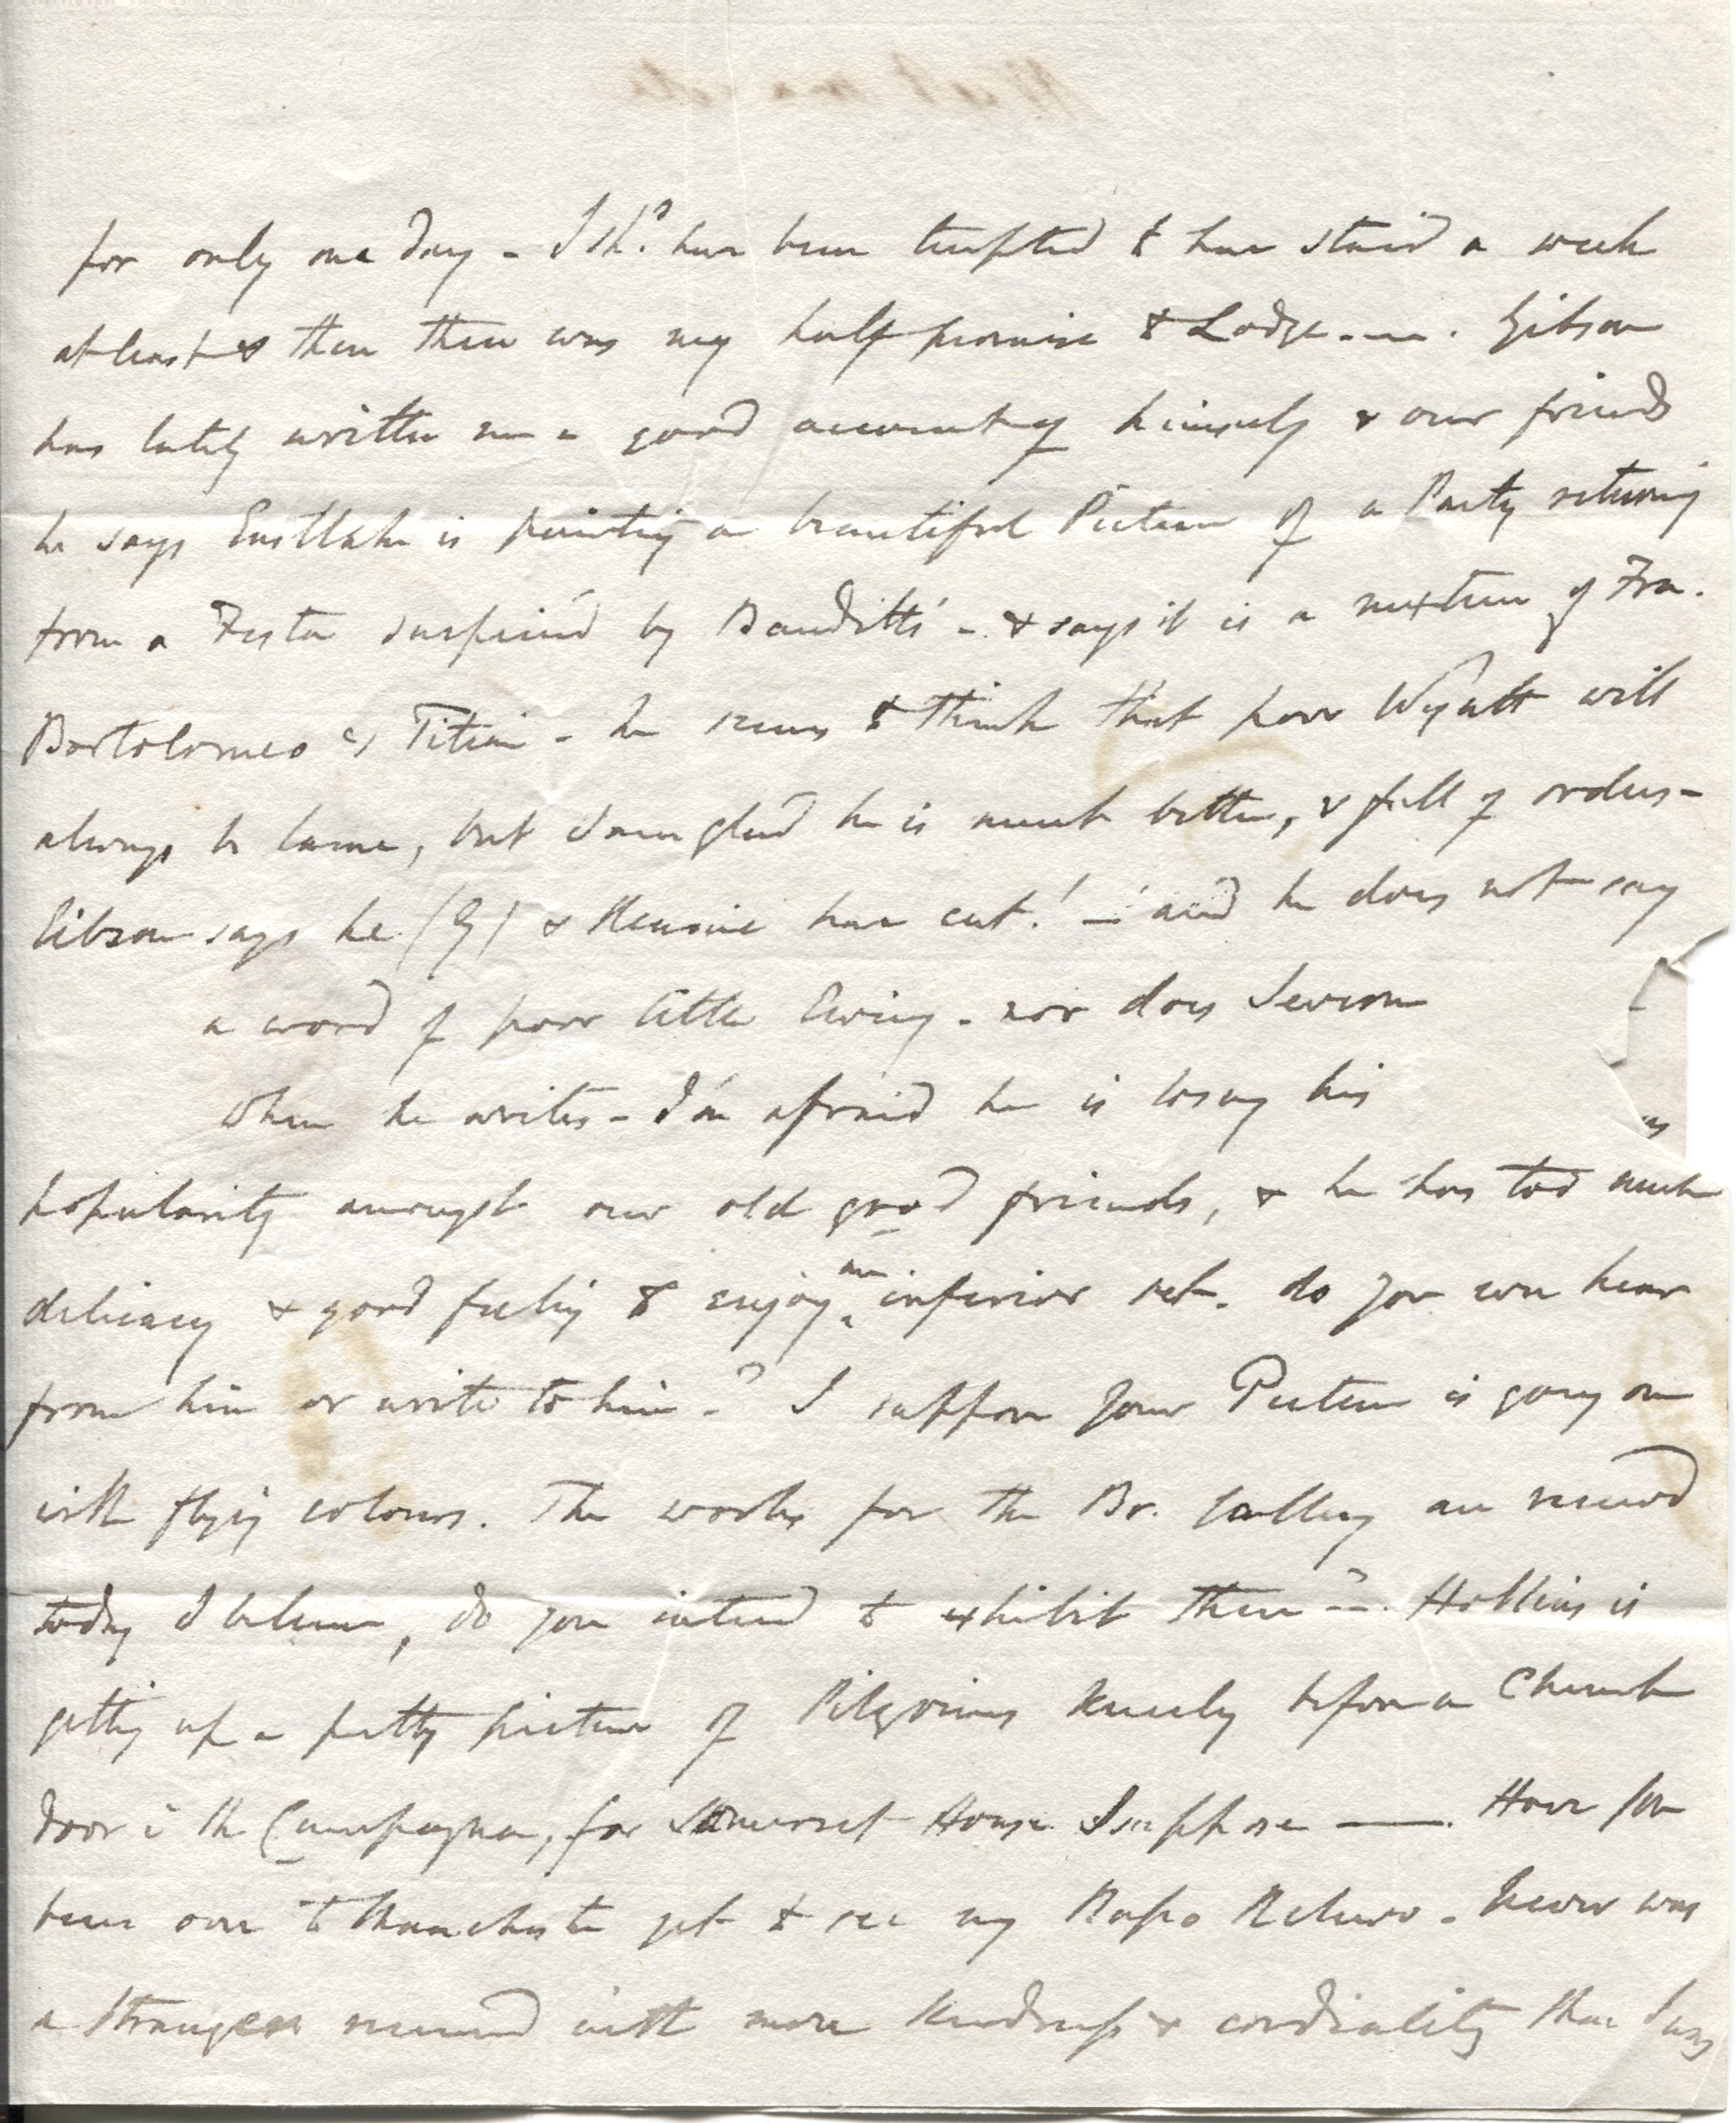 for only one day - I shd. have been tempted to have staid a week
at least & then there was my half promise to Lodge -. Gibson
has lately written me a good account of himself & our friends
he says Eastlake is painting a beautiful Picture of a Party returning
from a Festa surprised by Banditti - & says it is a mixture of Fra.
Bartolomeo & Titian - he seems to think that poor Wyatt will
always be lame, but I am glad he is much better, & full of orders -
Gibson says he (G) & have cut! - and he does not say
a word of poor little Ewing - nor does Severn
when he writes - I'm afraid he is losing his
popularity amongst our old good friends, & he has too much
delicacy & good feeling to enjoy an inferior set. do you ever hear
from him or write to him -? I suppose your Picture is going on
with flying colours. The works for the Br. Gallery are received
today I believe, do you intend to exhibit there -? Hollins is
getting up a pretty picture of Pilgrims kneeling before a Church
door in the Campagna, for Somerset House I suppose -. Have you
been over to Manchester yet to see my Relievo - Never was
a Stranger received with more kindness & cordiality than I was